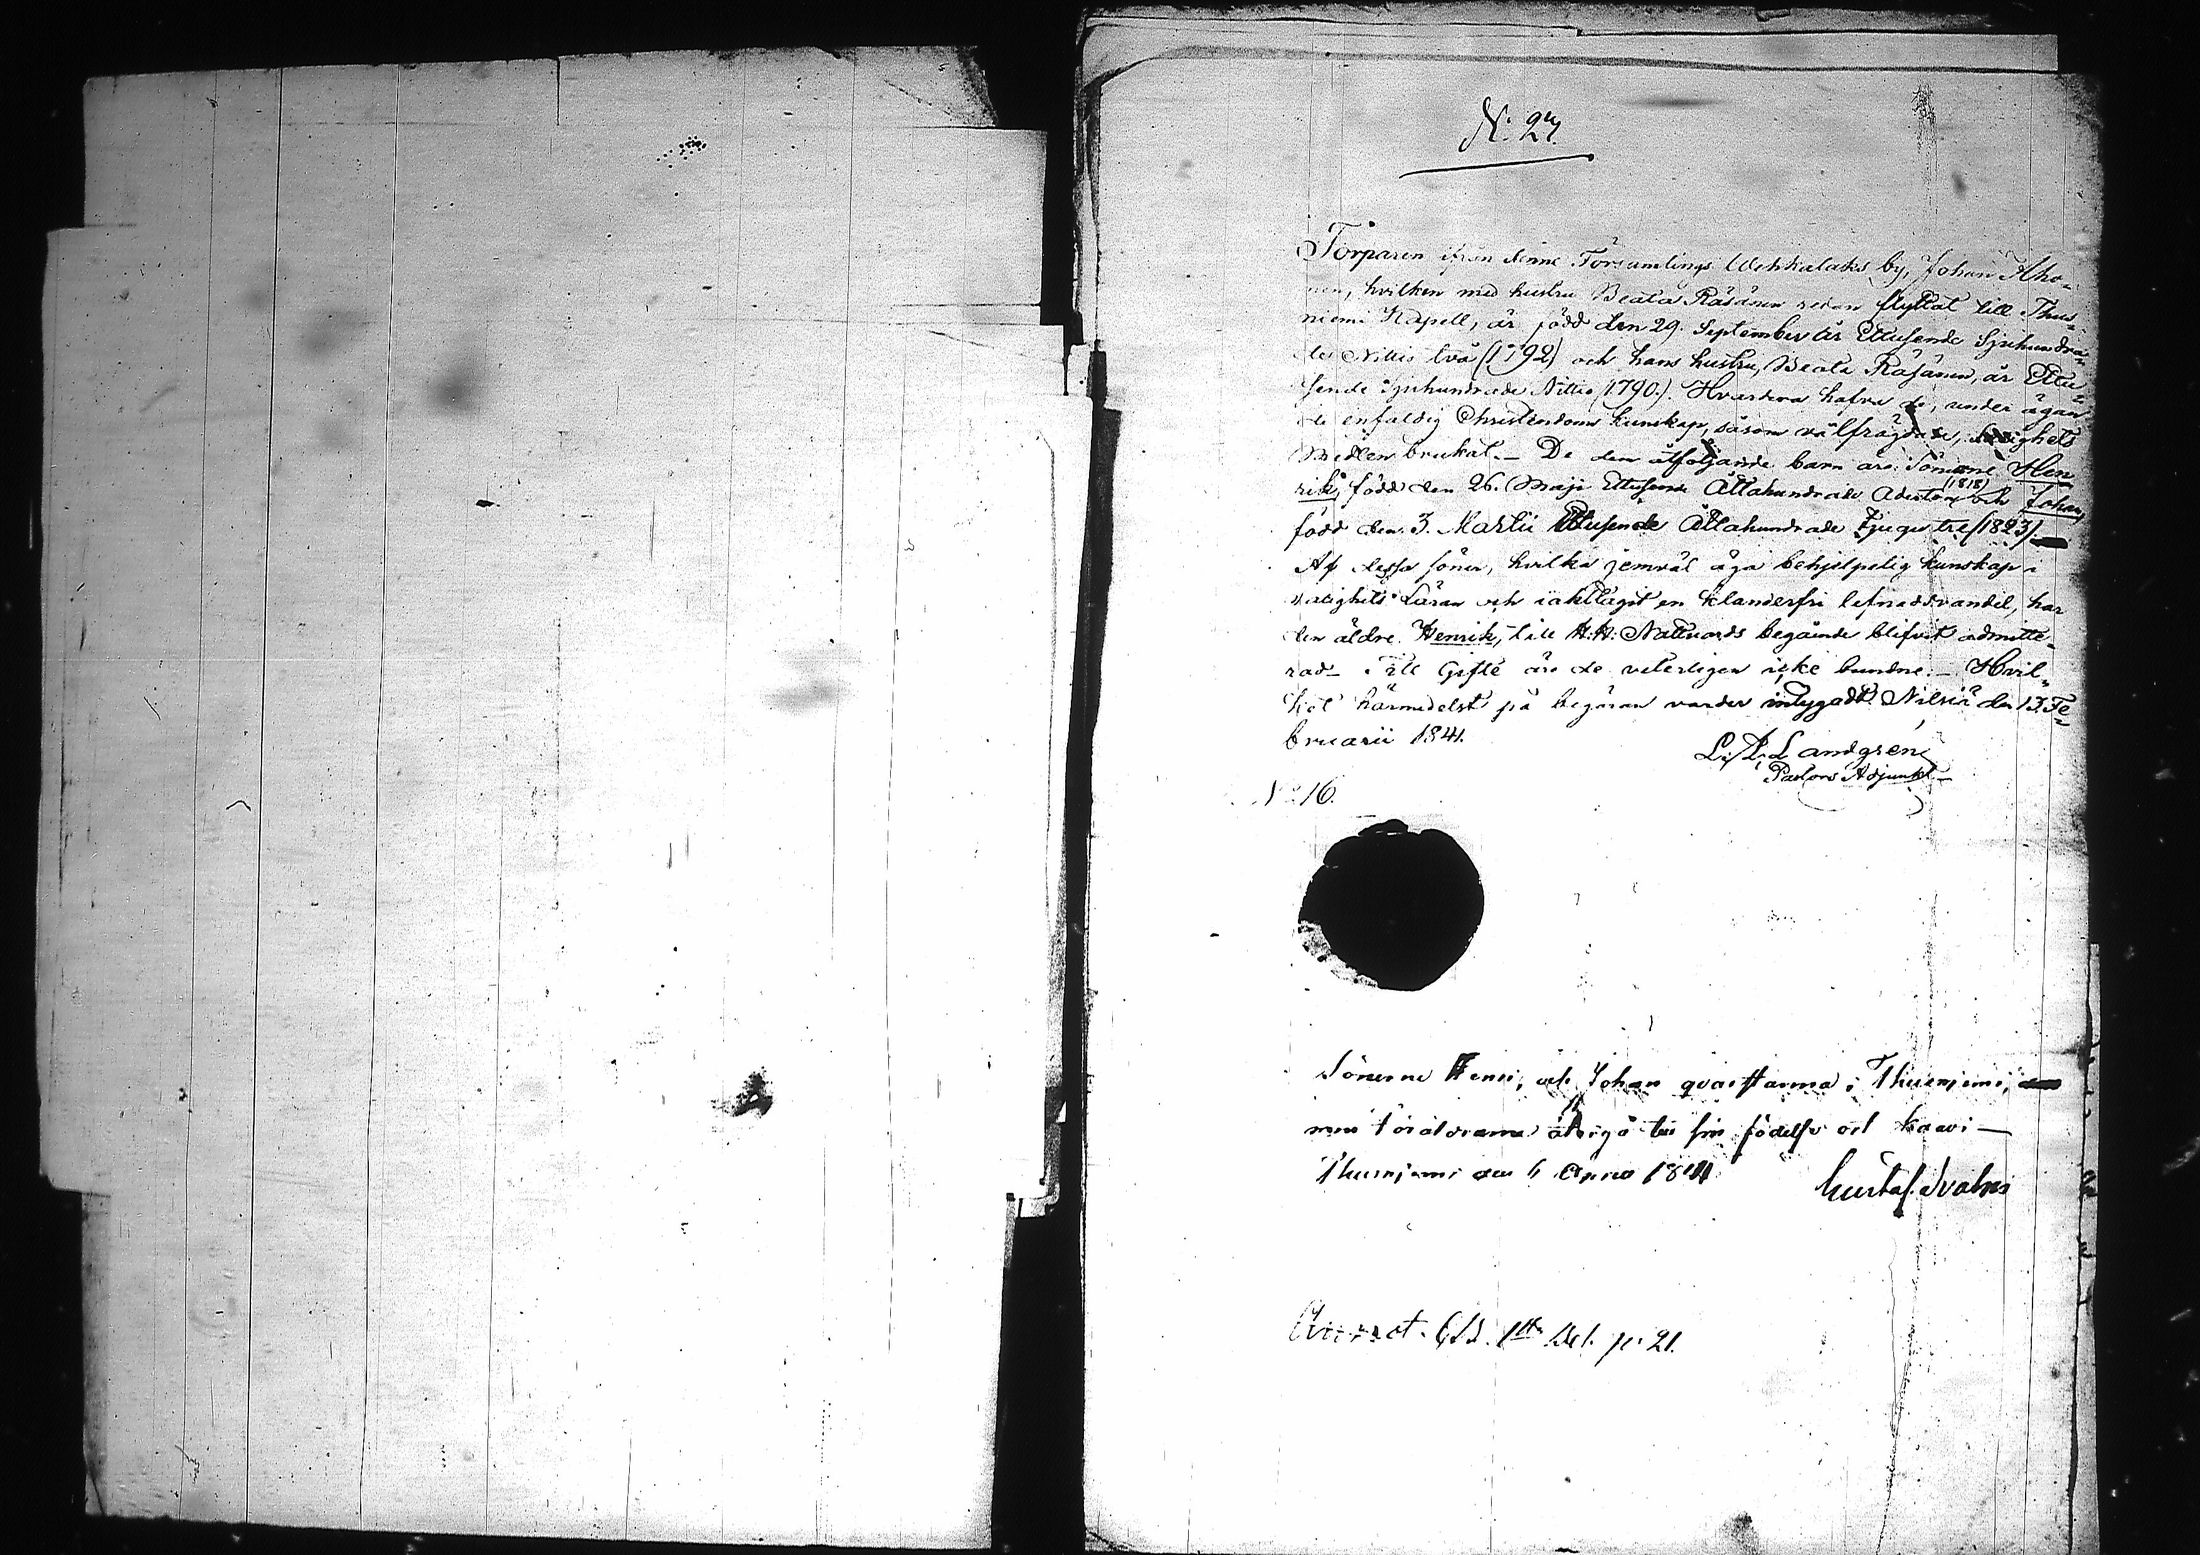 N: 27.
Torparen ifrån denne Församlings Wehkalaks by, Johan Aho-
nen, hvilken med hustru Beata Räsänen redan flyttat till Thus-
niemi Kapell, är född den 29. September år Ettusende Sjuhundra-
de Nittio två (1792) och hans hustru, Beata Räsänen, år Ettu-
sende Sjuhundrade Nittio (1790.). Hvardera hafva de, under ägan-
de enfaldig Christendoms kunskap, såsom välfrägdade, Salighets
Medlen brukat. – De dem åtföljande barn äro: Sönerne Hen-
rik, född den 26. Maji Ettusende Åttahundrade Aderton (1818) och Johan,
född den 3. Martii Ettusende Åttahundrade Tjugu tre (1823)
Af dessa söner, hvilka jemväl äga behjelpelig kunskap i
salighets Läran och iakttagit en klanderfri lefnadsvandel, har
den äldre Henrik, till H. H. Nattvards begående blifvit admitte-
rad – Till Gifte äro de veterligen icke bundne. – Hvil-
ket härmedelst på begäran varder intygadt. Nilsiä den 13. Fe-
bruarii 1841.
L. A. Landgren
Pastors Adjunkt. –
N: 16.
Sönerne Henr. och Johan qvarstanna i Thusniemi,
men föräldrarna återgå till sin födelse ort Kaavi –
Thusniemi den 6 1841
Gustaf
Annot. 1sta Del. p. 21.